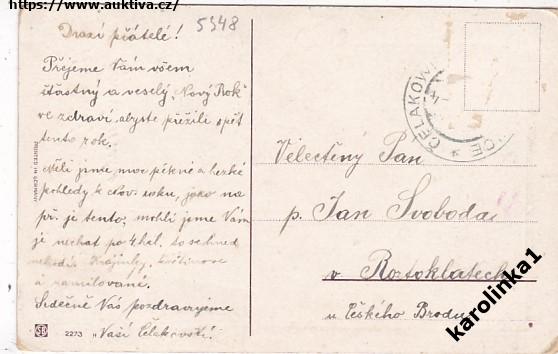 https://www.auktiva.cz/
5348
Drazí přátelé!
Přejeme Vám všem
šťastný a veselý „Nový Rok"
ve zdraví abyste přežili spět
tento rok.
Měli jsme moc pěkné a hezké
pohledy k Nov. roku, jako na
př. je tento; mohli jsme Vám
je nechat po hal. to se hned
nehodí. Krajinky, květinové
a zamilované.
Srdečně Vás pozdravujeme
„Vaši Čelakovští!"
PRINTED IN GERMANY
2273
ČELAKOVICE
Velectěný Pan
p. Jan Svoboda
v Roztoklatech
u Českého Brodu
karolinka1